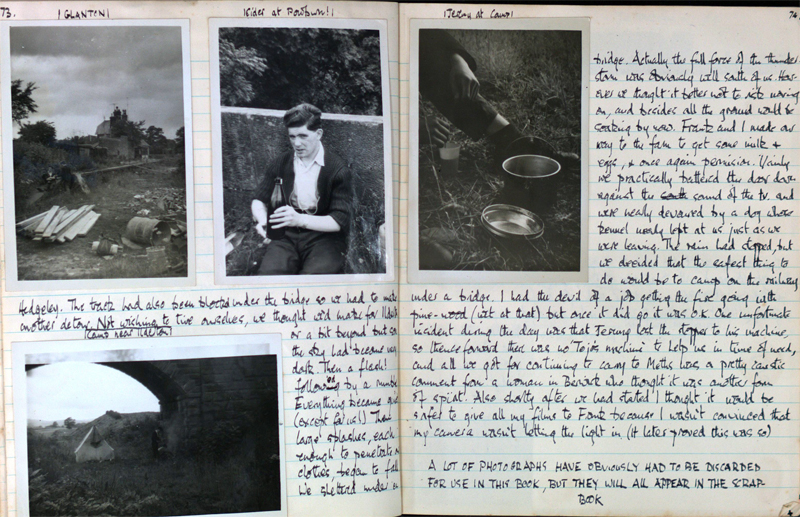 73.
GLANTON
Cider at Powburn!
Jeremy at Camp
74
Hedgeley. The track had also been blocked under the bridge so we had to make
another detour. Not wishing to tire ourselves, we thought we'd make for Ilderton
Camp near Ilderton
or a bit beyond but soon
the sky had become very
dark. Then a flash!
followed by a number
Everything became quiet
(except for us!) Then
large splashes, each
enough to penetrate
clothes, began to fall
We sheltered under
bridge. Actually the full force of the thunder-
storm was obviously well south of us. How-
ever we thought it better not to risk moving
on, and besides all the ground would be
soaking by now. Frantz and I made our
way to the farm to get some milk +
eggs, + once again permission. Vainly
we practically battered the door down
against the sound of the tv. and
were nearly devoured by a dog whose
kennel nearly leapt at us just as we
were leaving. The rain had stopped, but
we decided that the safest thing to
do would be to camp on the railway
under a bridge. I had the devil of a job getting the fire going with
pine-wood (wet at that) but once it did go it was O.K. One unfortunate
incident during the day was that Jeremy lost the stopper to his machine,
so thenceforward there was no 'Tejos machine' to help us in time of need,
and all we got for continuing to carry to Meths was a pretty caustic
comment from a woman in Berwick who thought it was another form
of spirit. Also shortly after we had started I thought it would be
safer to give all my films to Frantz because I wasn't convinced that
my camera wasn't letting the light in (It later proved this was so)
A LOT OF PHOTOGRAPHS HAVE OBVIOUSLY HAD TO BE DISCARDED
FOR USE IN THIS BOOK, BUT THEY WILL ALL APPEAR IN THE SCRAP
BOOK